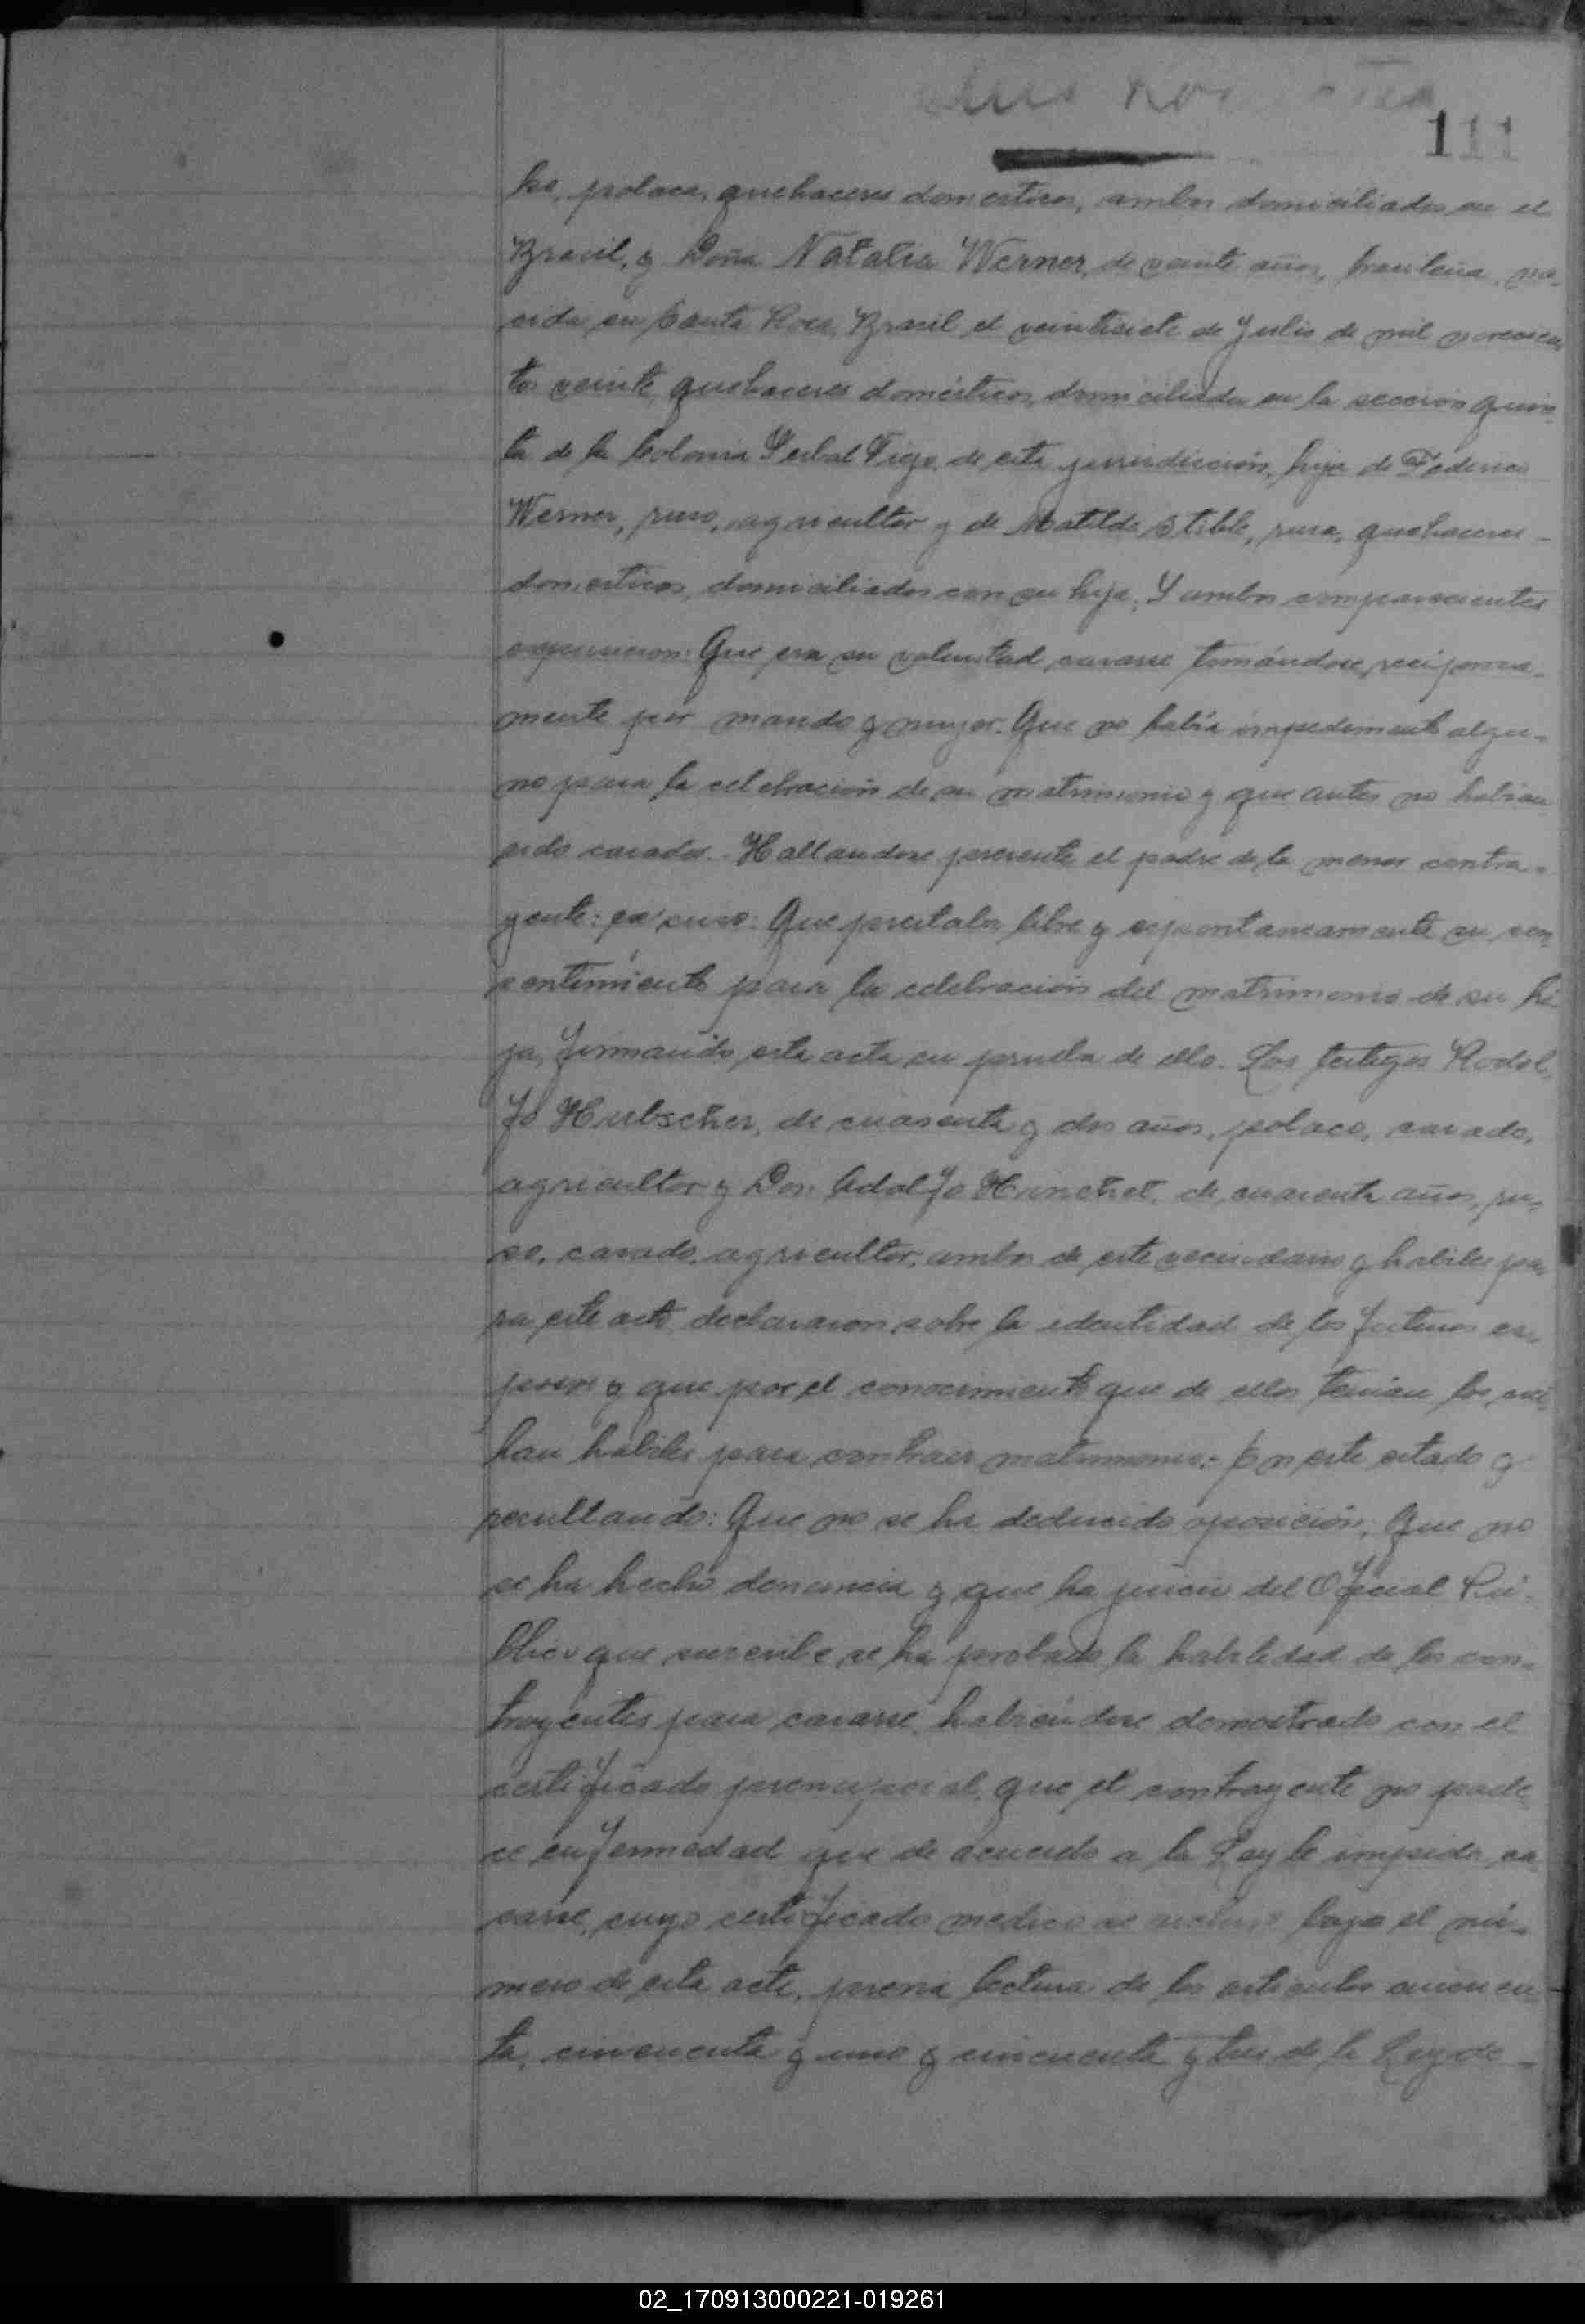 111
ke, polaca, quehaceres domesticos, ambos domiciliados en el
Brasil, y Doña Natalia Werner, de veinte años, brasileña, na-
cida en Santa Rosa, Brasil el veintisiete de Julio de mil novecien
tos veinte, quehaceres domésticos, domiciliada en la sección quin
ta de la Colonia Yerbal Viejo de esta jurisdicción, hija de Federico
Werner, ruso, agricultor y de Matilde Stible, rusa, quehaceres -
domesticos, domiciliados con su hija. Y ambos comparecientes
expusieron: Que era su voluntad casarse tomándose reciproca-
mente por marido y mujer. Que no había impedimento algu-
no para la celebración de su matrimonio y que antes no habian
sido casados. - Hallandose presente el padre de la menor contra-
yente: expuso: Que prestaba libre y espontaneamente su con
sentimiento para la celebración del matrimonio de su hi
ja, firmando esta acta en prueba de ello. Los testigos Rodol
fo Hubscher, de cuarenta y dos años, polaco, casado,
agricultor y Don Adolfo Hunchet, de cuarenta años, ru-
so, casado, agricultor, ambos de este vecindario y habiles pa-
ra este acto declararon sobre la identidad de los futuros es-
posos y que por el conocimiento que de ellos tenian los creí
han habiles para contraer matrimonio.- En este estado y
resultando: Que no se ha deducido oposición, Que no
se ha hecho denuncia y que ha juicio del Oficial Pú-
blico que suscribe se ha probado la habilidad de los con-
trayentes para casarse, habiéndose demostrado con el
certificado prenupcial, que el contrayente no pade-
ce enfermedad que de acuerdo a la Ley le impida ca
sarse, cuyo certificado medico se archivo bajo el nú-
mero de esta acta, previa lectura de los articulos cincuen
ta, cincuenta y uno y cincuenta y tres de la Ley de -
02_170913000221-019261